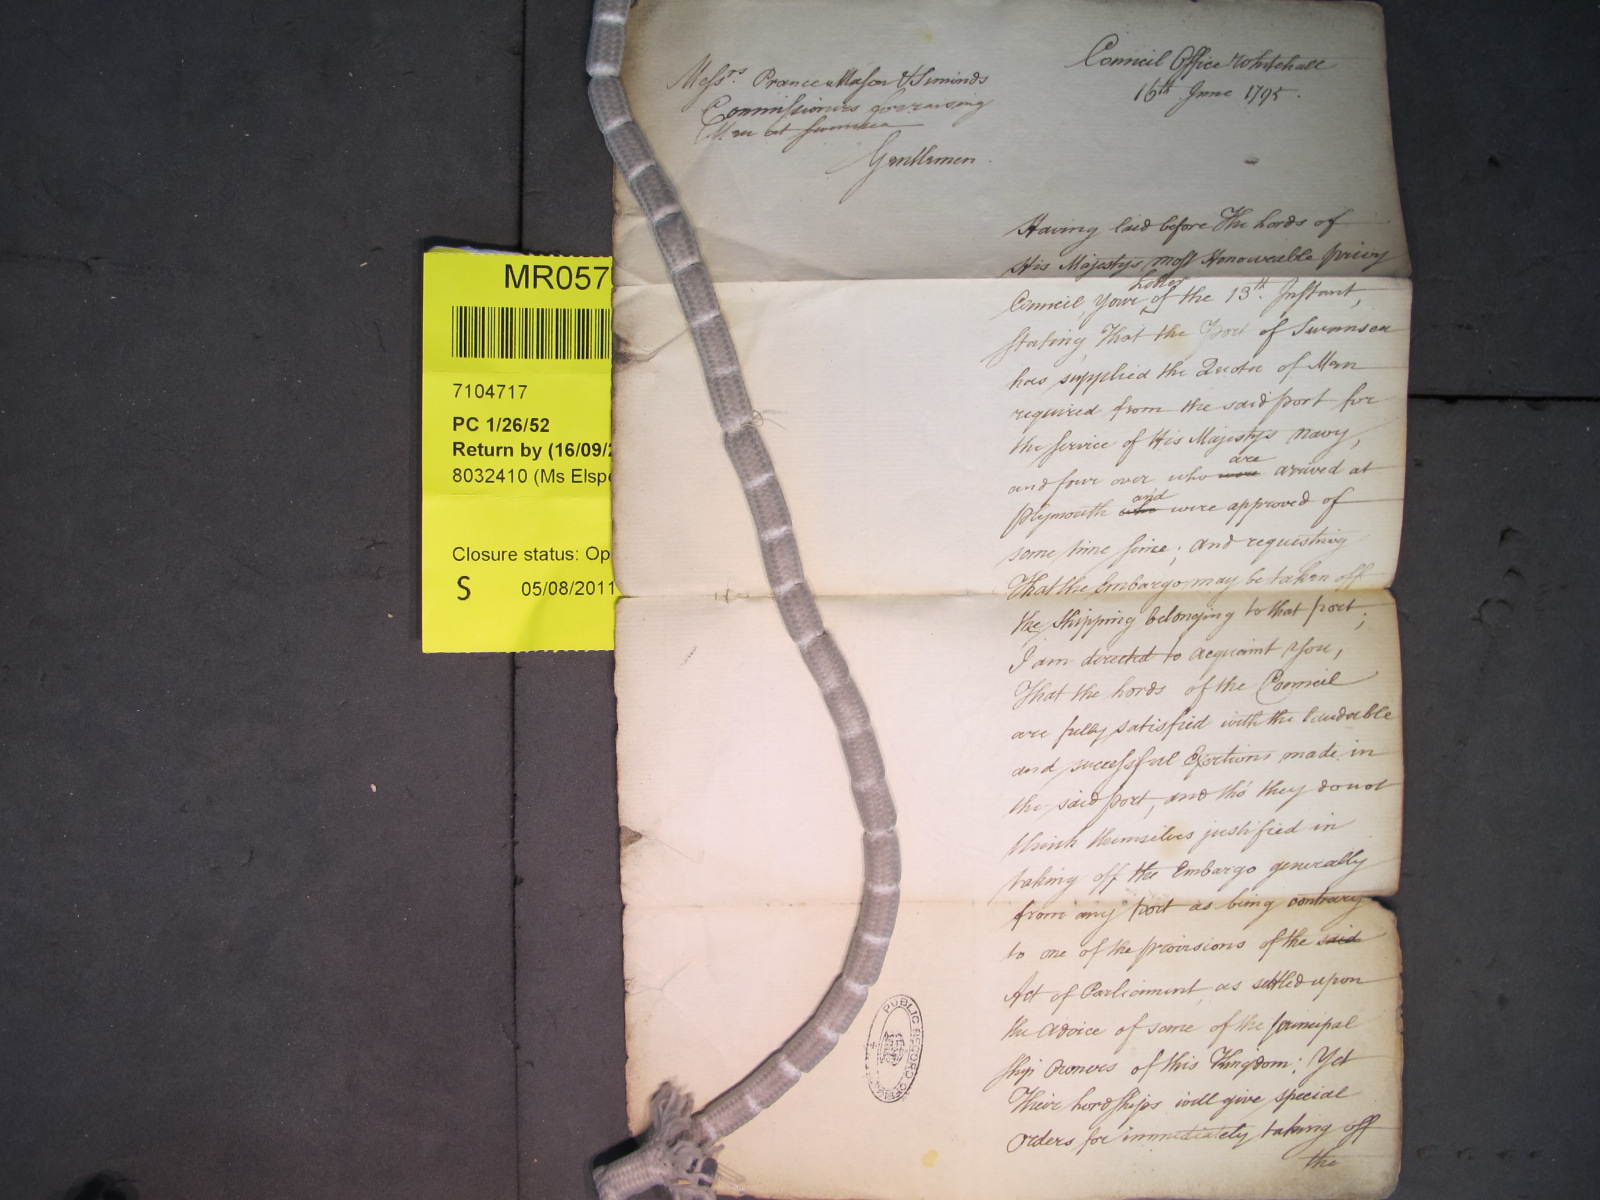 Council Office Whitehall
16th June 1795.
Messrs. Prance Mason & Simonds
Commissioners for raising
Men at Swansea
Gentlemen.
Having laid before The Lords of
His Majestys most Honourable privy
Council, Your Letter of the 13th. Instant,
stating That the Port of Swansea
has supplied the Quota of Men
required from the said port for
the service of His Majesty's Navy,
and four over who were are arrived at
Plymouth who and were approved of
some time since; and requesting
That the Embargo may be taken off
the shipping belonging to that port;
I am directed to acquaint You,
That the Lords of the Council
are fully satisfied with the laudable
and successful Exertions made in
the said port, and tho' they do not
think themselves justified in
taking off the Embargo generally
from any port as being contrary
to one of the provisions of the said
Act of Parliament, as settled upon
the advice of some of the principal
ship Owners of this Kingdom; Yet
Their Lordships will give special
Orders for immediately taking off
the
MR057
7104717
PC 1/26/52
Return by (16/09/2
8032410 (Ms Elspe
Closure status: Op
S 05/08/2011
PUBLIC RECORD OFFICE